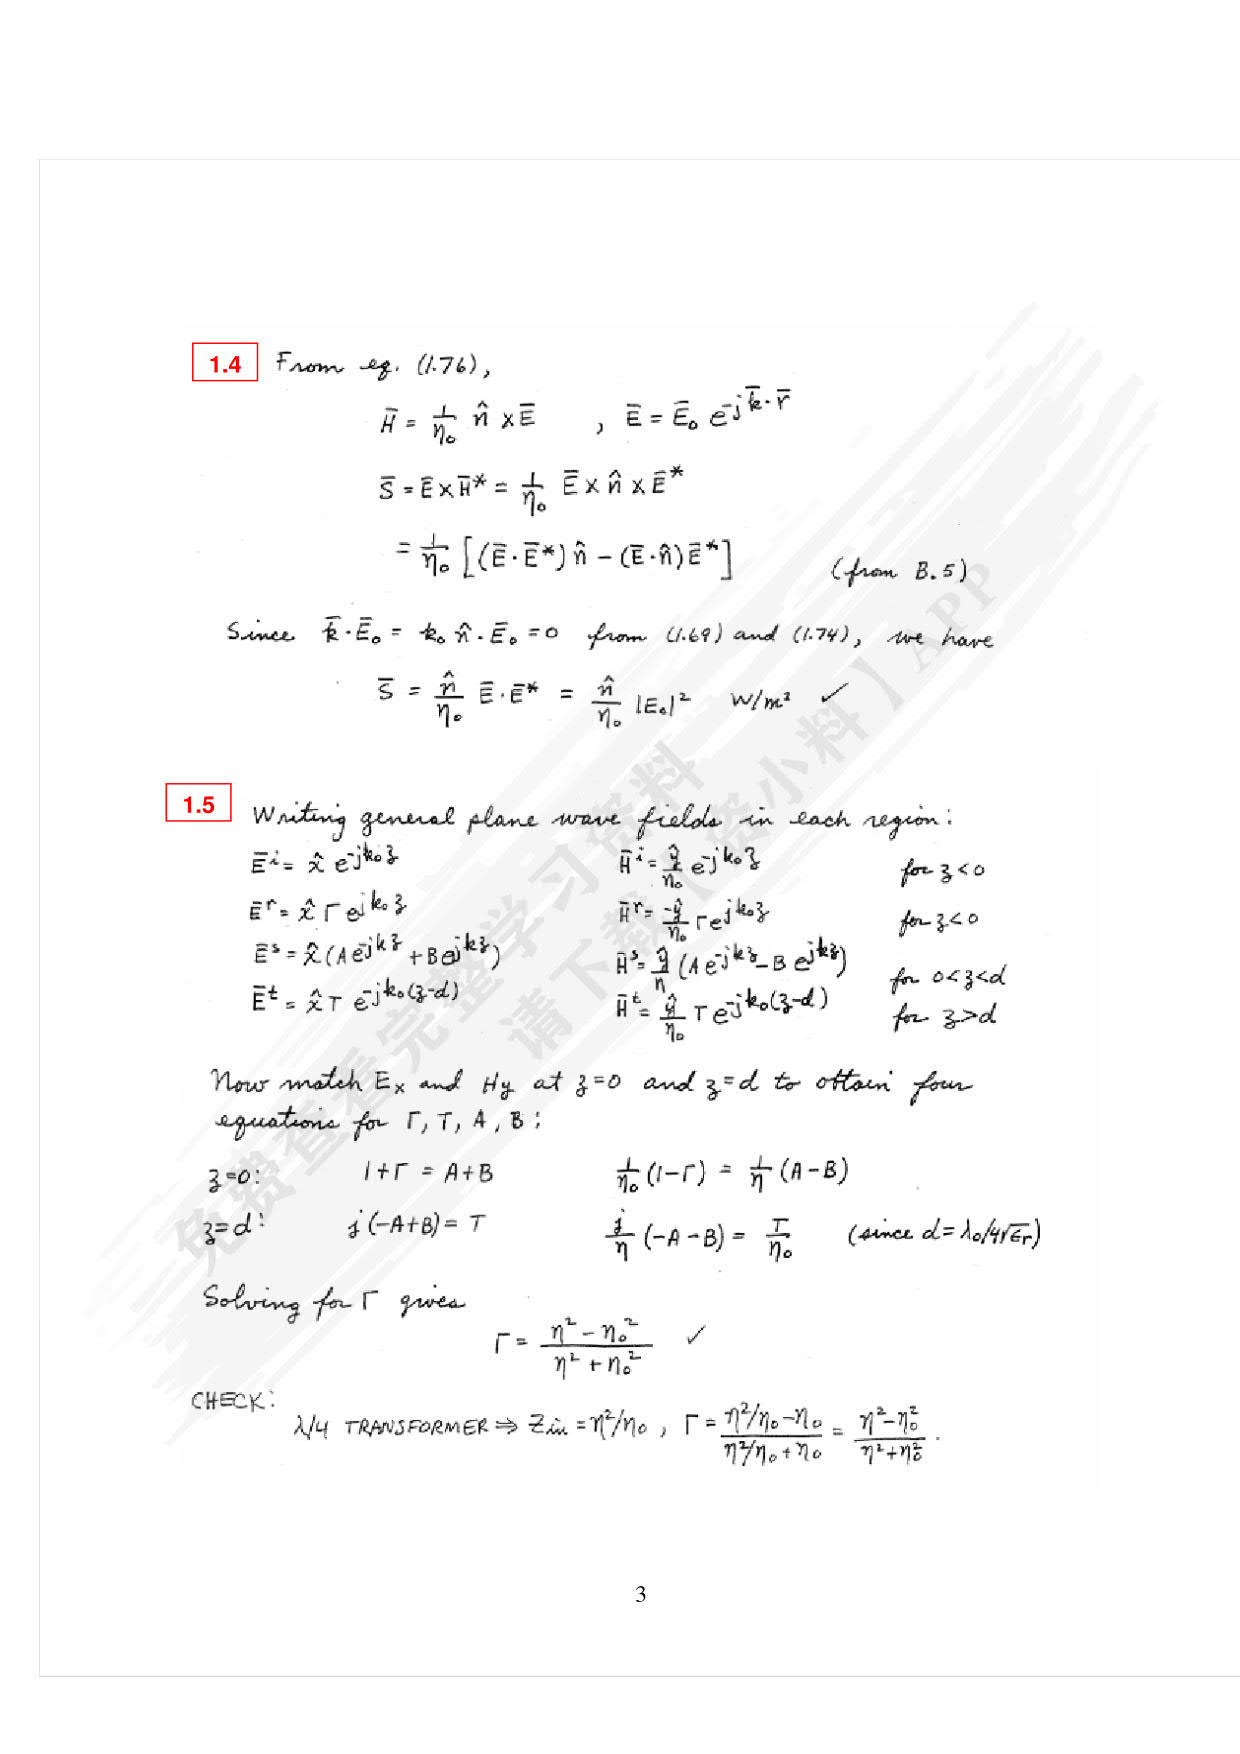 1.4 From eq. (1.76),
H̄ = 1/η₀ n̂ × Ē , Ē = Ē₀ e^{-j k̄·r̄}
S̄ = Ē × H̄* = 1/η₀ Ē × n̂ × Ē*
= 1/η₀ [(Ē·Ē*) n̂ − (Ē·n̂) Ē*] (from B.5)
Since k̄·Ē₀ = k₀ n̂·Ē₀ = 0 from (1.69) and (1.74), we have
S̄ = n̂/η₀ Ē·Ē* = n̂/η₀ |E₀|² W/m² ✓
1.5 Writing general plane wave fields in each region:
Ēⁱ = x̂ e^{-jk₀z} H̄ⁱ = ŷ/η₀ e^{-jk₀z} for z<0
Ēʳ = x̂ Γ e^{jk₀z} H̄ʳ = -ŷ/η₀ Γ e^{jk₀z} for z<0
Ēˢ = x̂ (A e^{-jkz} + B e^{jkz}) H̄ˢ = ŷ/η (A e^{-jkz} − B e^{jkz}) for 0<z<d
Ēᵗ = x̂ T e^{-jk₀(z-d)} H̄ᵗ = ŷ/η₀ T e^{-jk₀(z-d)} for z>d
Now match Eₓ and Hy at z=0 and z=d to obtain four
equations for Γ, T, A, B:
z=0: 1+Γ = A+B 1/η₀ (1−Γ) = 1/η (A−B)
z=d: j(−A+B) = T j/η (−A−B) = T/η₀ (since d = λ₀/4√εr)
Solving for Γ gives
Γ = (η² − η₀²)/(η² + η₀²) ✓
CHECK:
λ/4 TRANSFORMER ⇒ Zin = η²/η₀ , Γ = (η²/η₀ − η₀)/(η²/η₀ + η₀) = (η² − η₀²)/(η² + η₀²) .
3
免费查看完整学习资料
请下载【资小料】APP